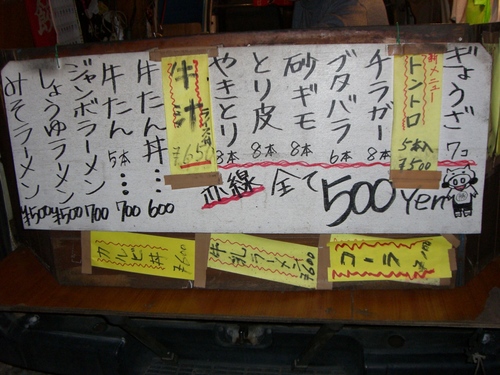 ぎょうざ 7コ
新メニュー
トントロ 5本入 ¥500
チラガー 8本
ブタバラ 6本
砂ギモ 8本
とり皮 8本
やきとり 8本
牛たん丼… 600
牛たん 5本… 700
ジャンボラーメン 700
しょうゆラーメン ¥500
みそラーメン ¥500
赤線 全て 500Yen
カルビ丼 ¥600
牛乳ラーメン ¥600
コーラ